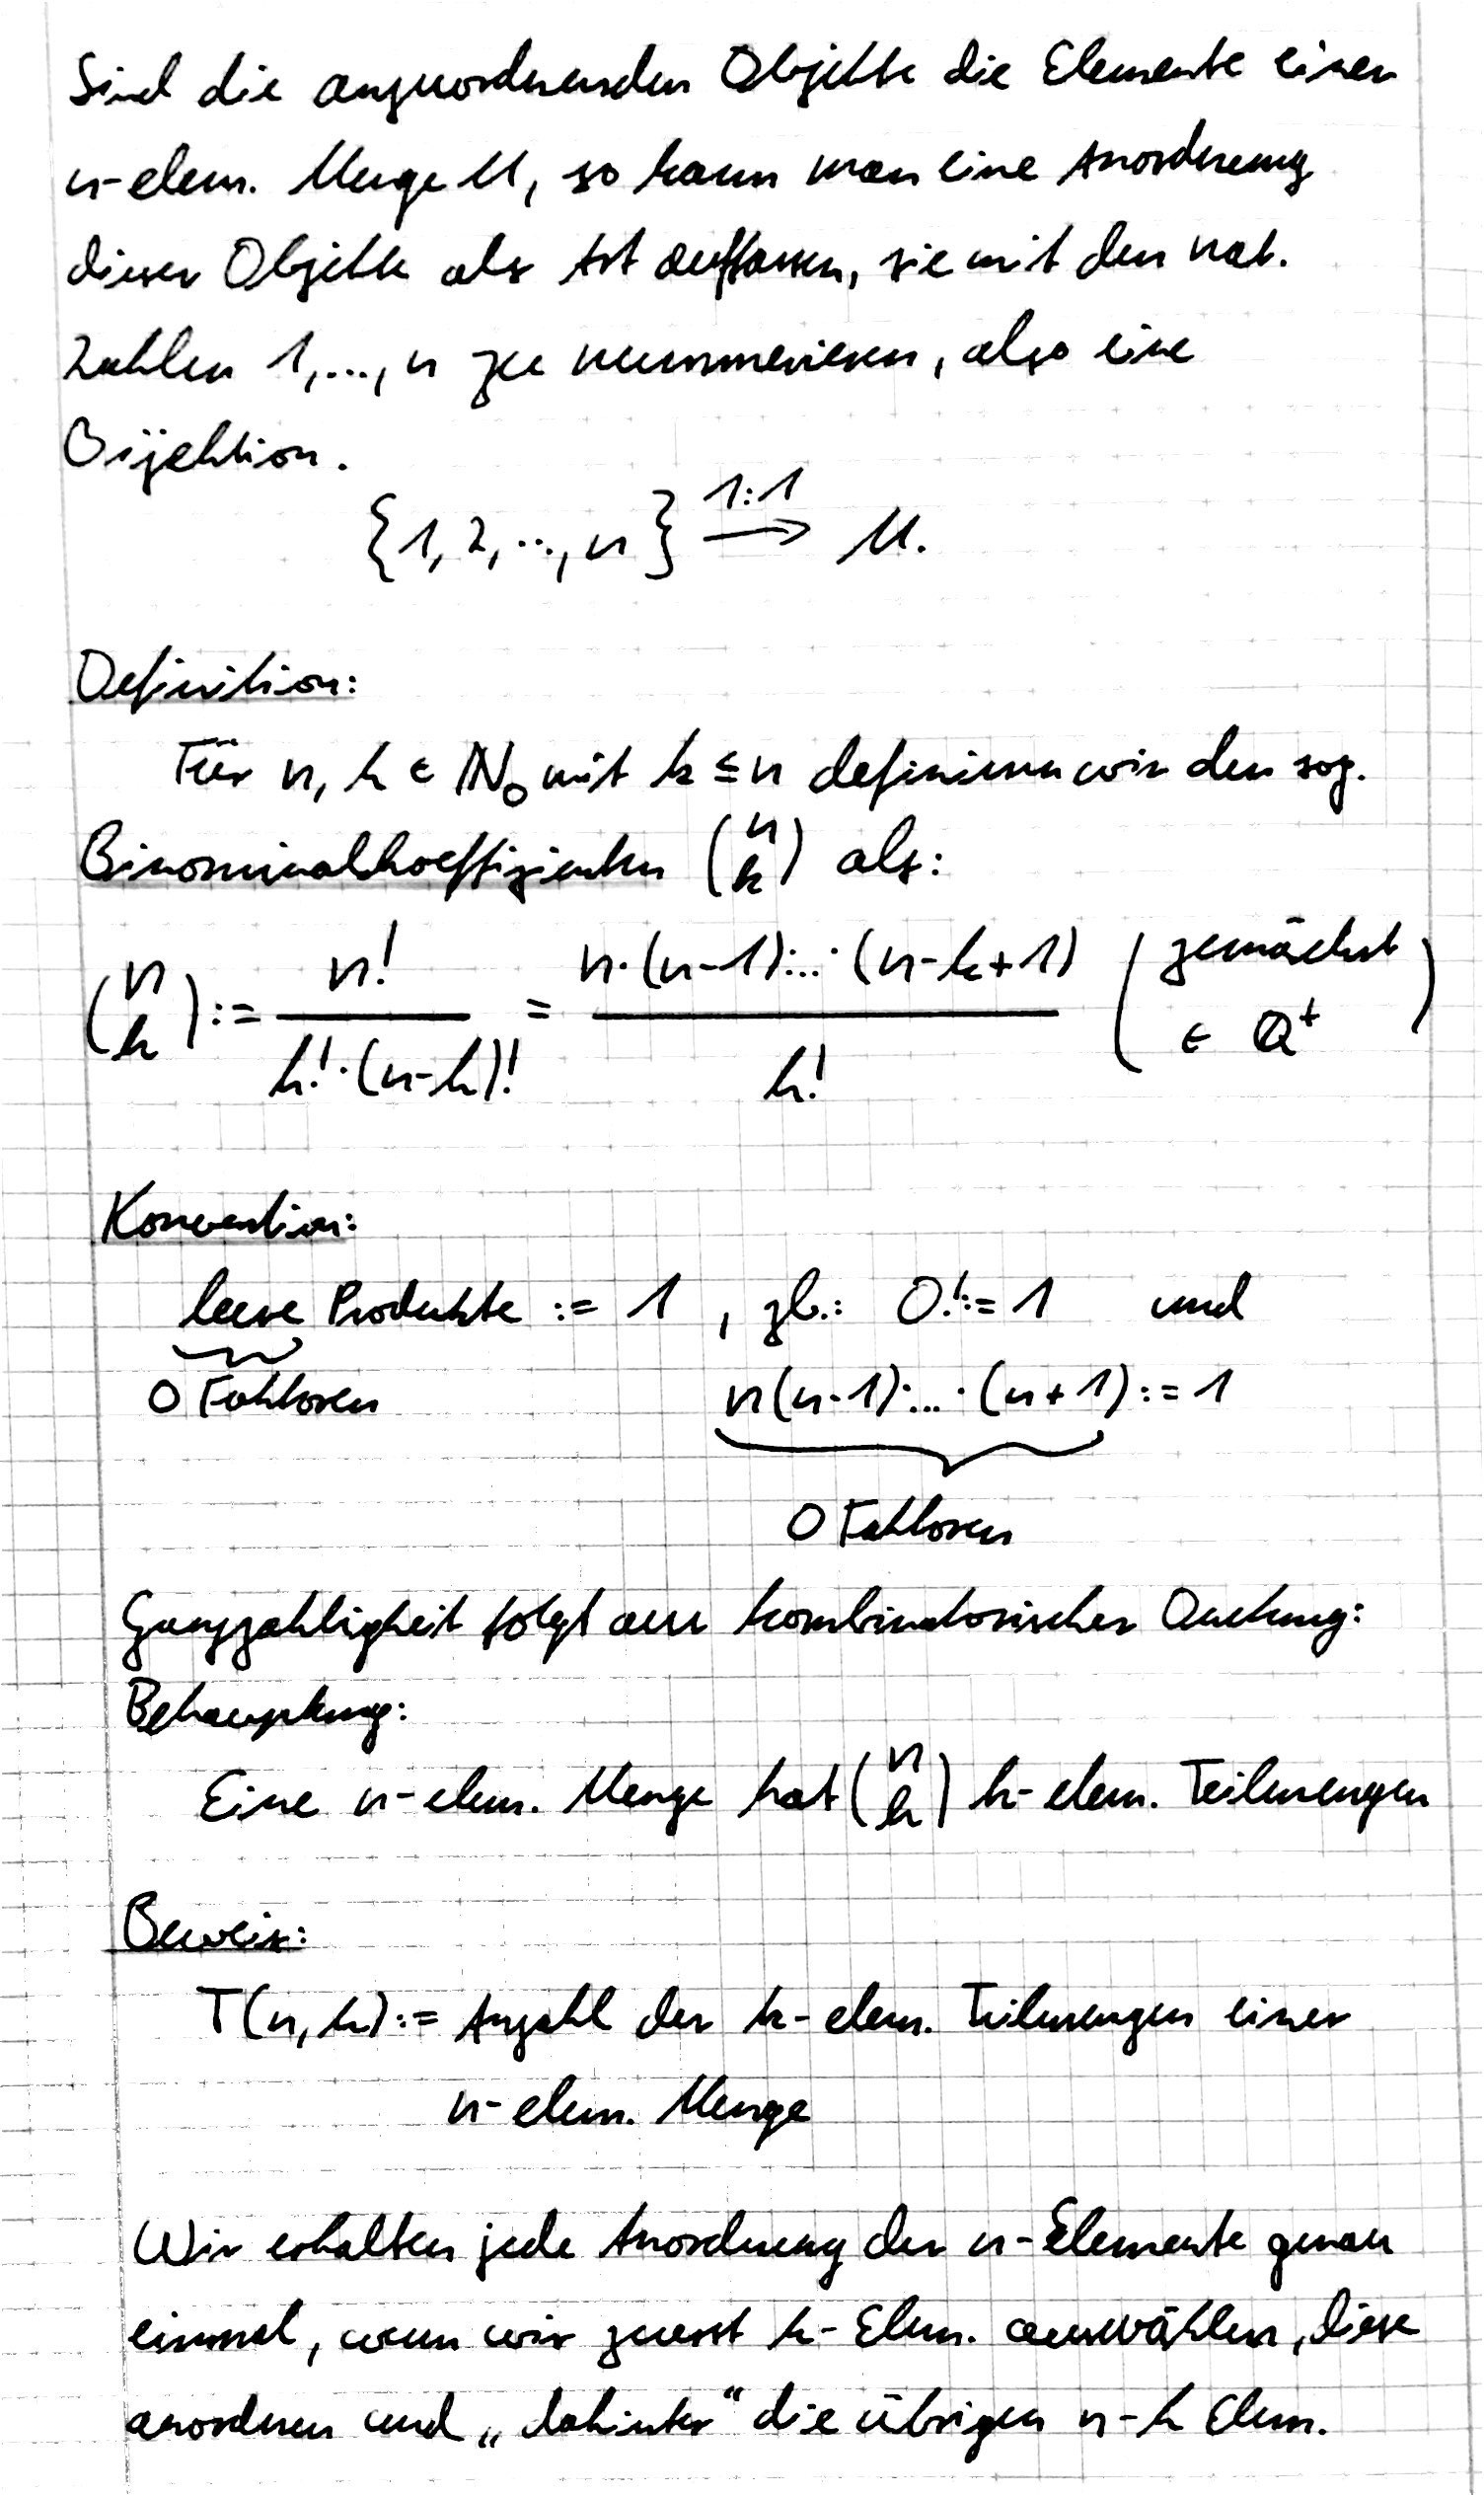 Sind die anzuordnenden Objekte die Elemente einer
n-elem. Menge M, so kann man eine Anordnung
dieser Objekte als Art auffassen, sie mit den nat.
Zahlen 1,..., n zu nummerieren, also eine
Bijektion.
{1, 2, ..., n} \xrightarrow{1:1} M.
Definition:
Für n, k ∈ ℕ₀ mit k ≤ n definieren wir den sog.
Binominalkoeffizienten \binom{n}{k} als:
\binom{n}{k} := \frac{n!}{k!·(n-k)!} = \frac{n·(n-1)·...·(n-k+1)}{k!} (zunächst ∈ ℚ⁺)
Konvention:
leere Produkte := 1 , zb.: 0! := 1 und
0 Faktoren n(n-1)·...·(n+1) := 1
0 Faktoren
Ganzzahligkeit folgt aus kombinatorischer Deutung:
Behauptung:
Eine n-elem. Menge hat \binom{n}{k} k-elem. Teilmengen
Beweis:
T(n,k) := Anzahl der k-elem. Teilmengen einer
n-elem. Menge
Wir erhalten jede Anordnung der n-Elemente genau
einmal, wenn wir zuerst k-Elem. auswählen, diese
anordnen und „dahinter“ die übrigen n-k Elem.